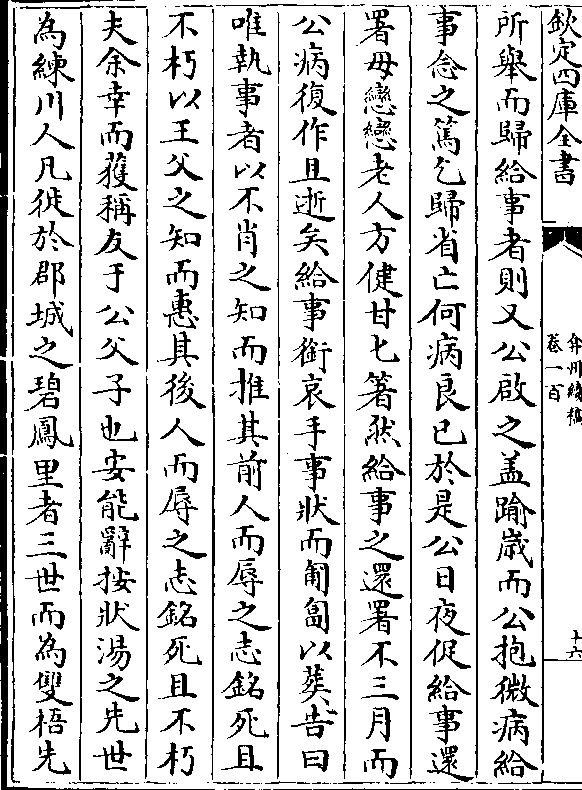 欽定四庫全書
弇州續稿
卷一百
十六
所舉而歸給事者則又公啟之盖踰嵗而公抱微病給
事念之篤乞歸省亡何病良已於是公日夜促給事還
署毋戀戀老人方健甘匕箸然給事之還署不三月而
公病復作且逝矣給事銜哀手事狀而匍匐以𦵏告曰
唯執事者以不肖之知而推其前人而辱之志銘死且
不朽以王父之知而惠其後人而辱之志銘死且不朽
夫余幸而獲稱友于公父子也安能辭按狀湯之先世
為練川人凡徙於郡城之碧鳳里者三世而為雙梧先